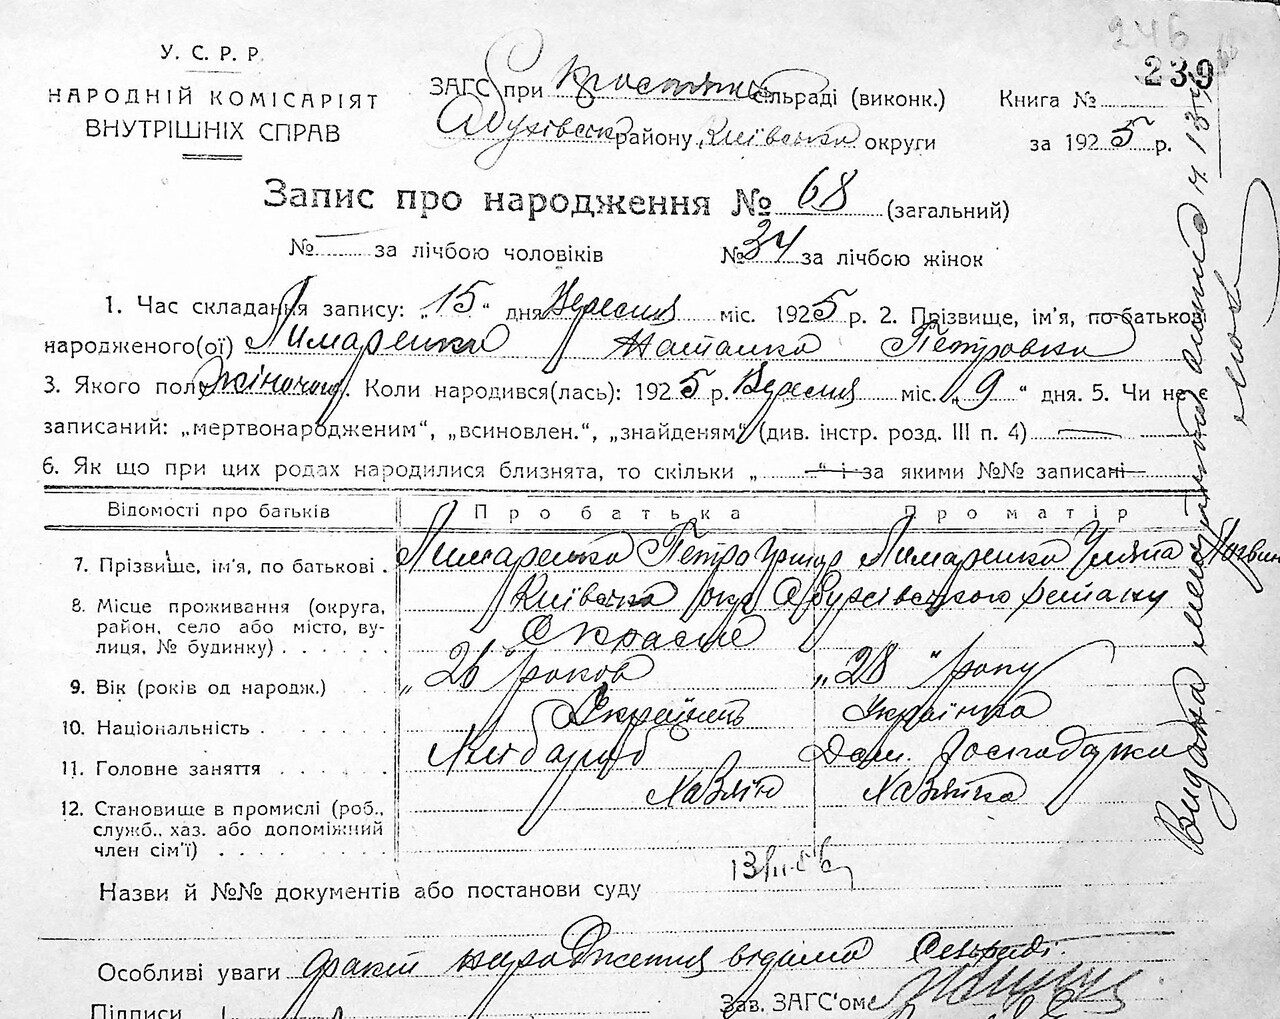 246
239
У. С. Р. Р.
НАРОДНІЙ КОМІСАРІЯТ
ВНУТРІШНІХ СПРАВ
ЗАГС при сільраді (виконк.)
Обухівськ району Київська округи
Книга №
за 1925 р.
Запис про народження № 68 (загальний)
№ — за лічбою чоловіків № 34 за лічбою жінок
1. Час складання запису: „15“ дня Вересня міс. 1925 р. 2. Прізвище, ім'я, по-батькові
народженого(ої) Лимаренко Наталка Петровна
3. Якого полу жіночого. Коли народився(лась): 1925 р. Вересня міс. „9“ дня. 5. Чи не є
записаний: „мертвонародженим“, „всиновлен.“, „знайденям“ (див. інстр. розд. III п. 4) —
6. Як що при цих родах народилися близнята, то скільки „ — “ і за якими №№ записані —
Відомості про батьків Про батька Про матір
7. Прізвище, ім'я, по батькові . Лимаренко Петро Лимаренко Уляна
8. Місце проживання (округа, Київська окр Обухівського району
район, село або місто, ву-
лиця, № будинку) . . . . . .
9. Вік (років од народж.) . . „26“ роков „28“ року
10. Національність . . . . . . Українець Українка
11. Головне заняття . . . . . Хлібороб Дом. Господарка
12. Становище в промислі (роб., Хазяїн Хазяйка
служб., хаз. або допоміжний
член сім'ї) . . . . . . . .
Назви й №№ документів або постанови суду
Особливі уваги факт народження відома Сельраді
Підписи Зав. ЗАГС'ом
Видана